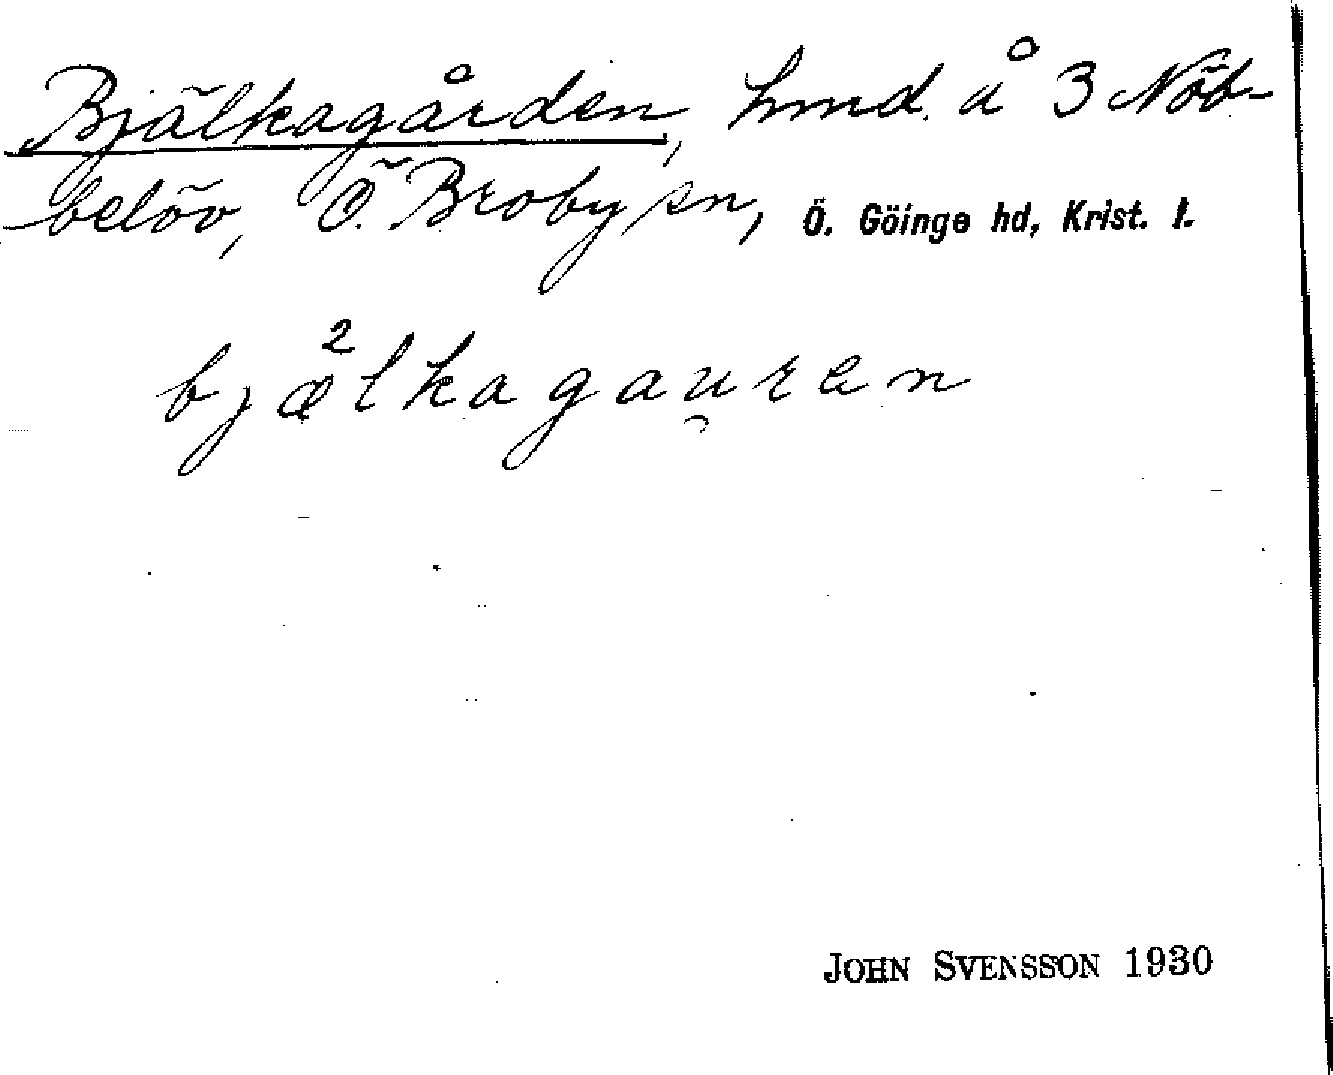 Bjälkagården, hmd. å 3 Nöb-
belöv, Ö. Broby sn, Ö. Göinge hd, Krist. l.
bjæ²lkagau̯ren
JOHN SVENSSON 1930